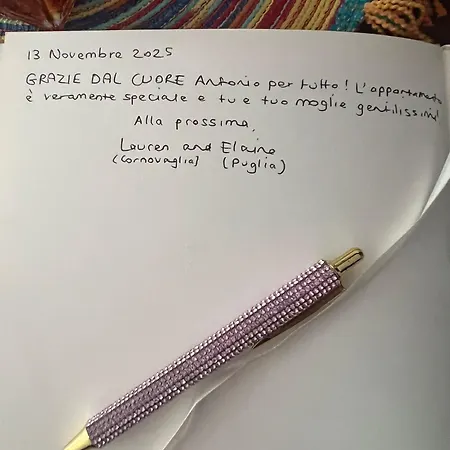 13 Novembre 2025
GRAZIE DAL CUORE Antonio per tutto! L'appartamento
è veramente speciale e tu e tuo moglie gentilissimi!
Alla prossima,
Lauren and Elaine
(Cornovaglia) (Puglia)